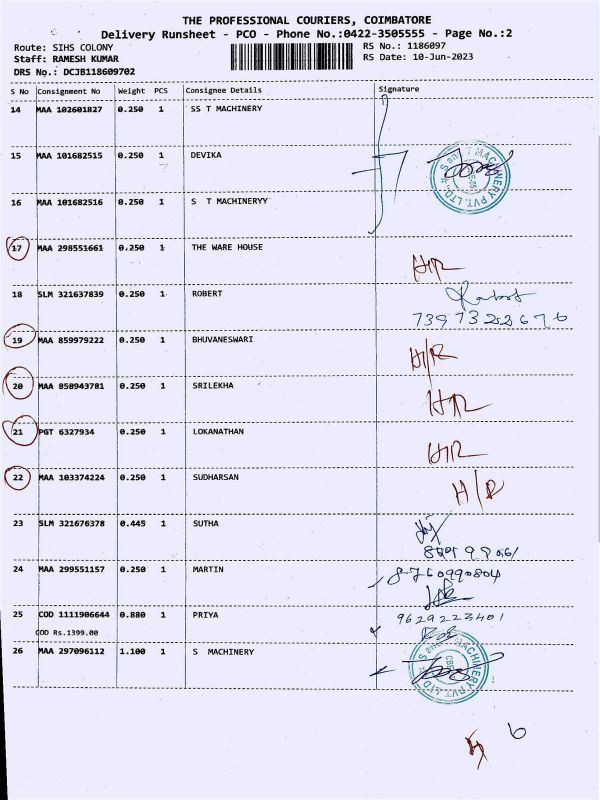 THE PROFESSIONAL COURIERS, COIMBATORE
Delivery Runsheet - PCO - Phone No.:0422-3505555 - Page No.:2
Route: SIHS COLONY RS No.: 1186097
Staff: RAMESH KUMAR RS Date: 10-Jun-2023
DRS No.: DCJB118609702
S No Consignment No Weight PCS Consignee Details Signature
14 MAA 102601827 0.250 1 SS T MACHINERY
15 MAA 101682515 0.250 1 DEVIKA
16 MAA 101682516 0.250 1 S T MACHINERYY
17 MAA 298551661 0.250 1 THE WARE HOUSE
H/R
18 SLM 321637839 0.250 1 ROBERT
Robot
7397322676
19 MAA 859979222 0.250 1 BHUVANESWARI
H/R
20 MAA 858943781 0.250 1 SRILEKHA
H/R
21 PGT 6327934 0.250 1 LOKANATHAN
H/R
22 MAA 103374224 0.250 1 SUDHARSAN
H/R
23 SLM 321676378 0.445 1 SUTHA
24 MAA 299551157 0.250 1 MARTIN
8760990804
25 COD 1111906644 0.880 1 PRIYA
9629223401
COD Rs.1399.00
26 MAA 297096112 1.100 1 S MACHINERY
6